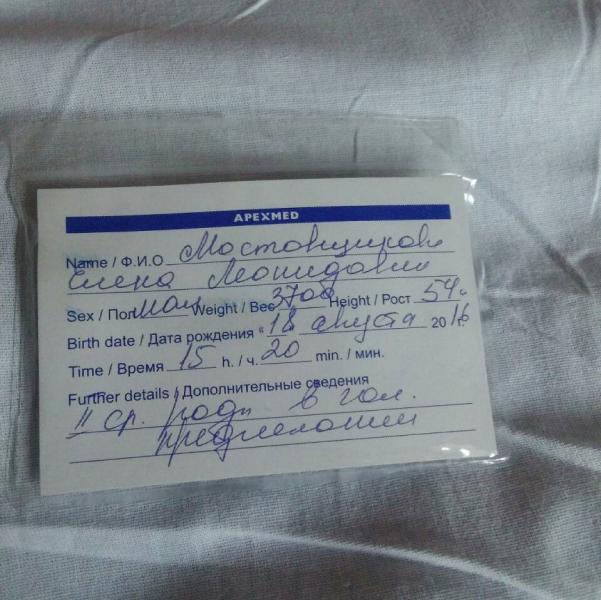 APEXMED
Name / Ф.И.О Мостовщикова
Елена Леонидовна
Sex / Пол мал Weight / Вес 3700 Height / Рост 54
Birth date / Дата рождения « 18 августа 20 16
Time / Время 15 h. / ч. 20 min. / мин.
Further details / Дополнительные сведения
II ср. роды в гол.
предлежании